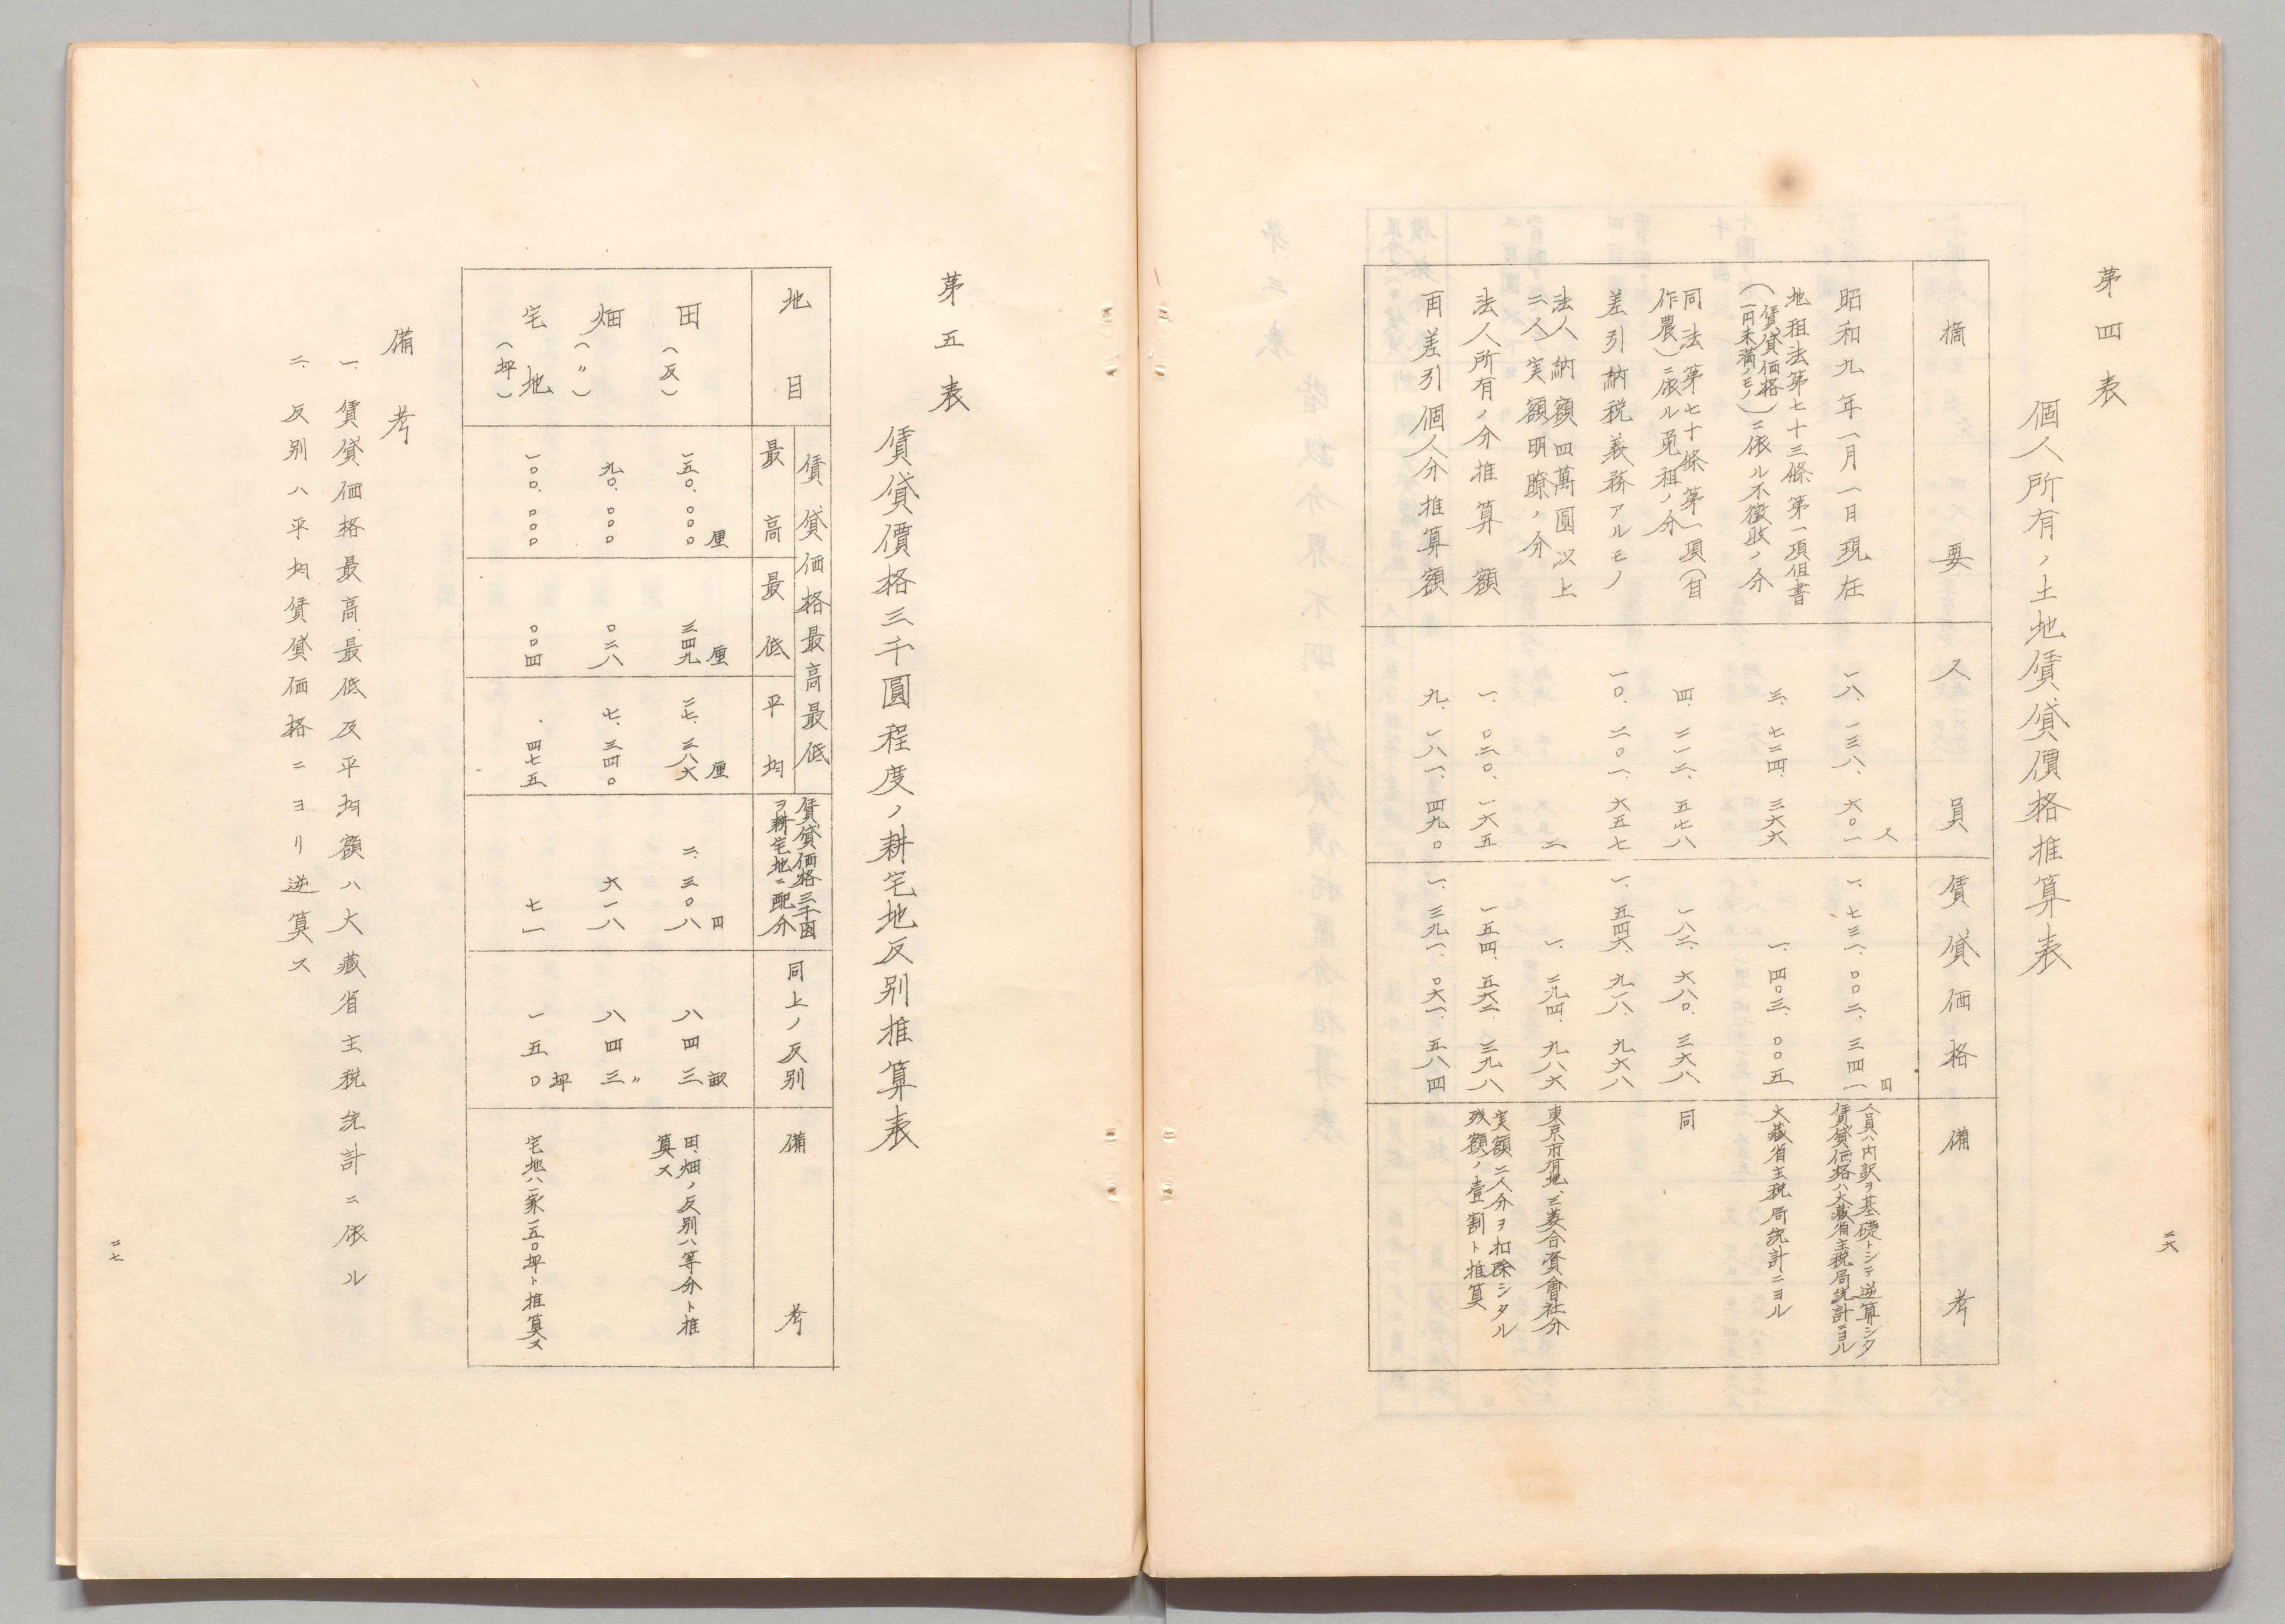 第四表
個人所有ノ土地賃貸價格推算表
摘要
人員
賃貸価格
備考
昭和九年一月一日現在
一八、一三八、六〇一人
一、七三一、〇〇二、三四一円
人員ハ内訳ヲ基礎トシテ逆算シタ
賃貸価格ハ大蔵省主税局統計ニヨル
地租法第七十三條第一項但書
(賃貸価格一円未満ノモノ)ニ依ル不徴収ノ分
三、七二四、三六六
一、四〇三、〇〇五
大蔵省主税局統計ニヨル
同法第七十條第一項(自
作農)ニ依ル免租ノ分
四、二一二、五七八
一八二、六八〇、三六八
同
差引納税義務アルモノ
一〇、二〇一、六五七
一、五四六、九一八、九六八
法人納額四萬圓以上
二人実額明瞭ノ分
二
一、二九四、九八六
東京市有地、三菱合資會社分
法人所有ノ分推算額
一、〇二〇、一六五
一五四、五六二、三九八
実額二人分ヲ扣除シタル
残額ノ壹割ト推算
再差引個人分推算額
九、一八一、四九〇
一、三九一、〇六一、五八四
二六
第五表
賃貸價格三千圓程度ノ耕宅地反別推算表
地目
賃貸価格最高最低
最高
最低
平均
賃貸価格三千円
ヲ耕宅地ニ配分
同上ノ反別
備考
田(反)
一五〇.〇〇〇厘
三四九厘
二七.三八六厘
二、三〇八円
八四三畝
田、畑ノ反別ハ等分ト推
算ス
畑(〃)
九〇.〇〇〇
〇二八
七.三四〇
六一八
八四三〃
宅地(坪)
一〇〇.〇〇〇
〇〇四
.四七五
七一
一五〇坪
宅地ハ一家一五〇坪ト推算ス
備考
一、賃貸価格最高最低及平均額ハ大藏省主税統計ニ依ル
二、反別ハ平均賃貸価格ニヨリ逆算ス
二七